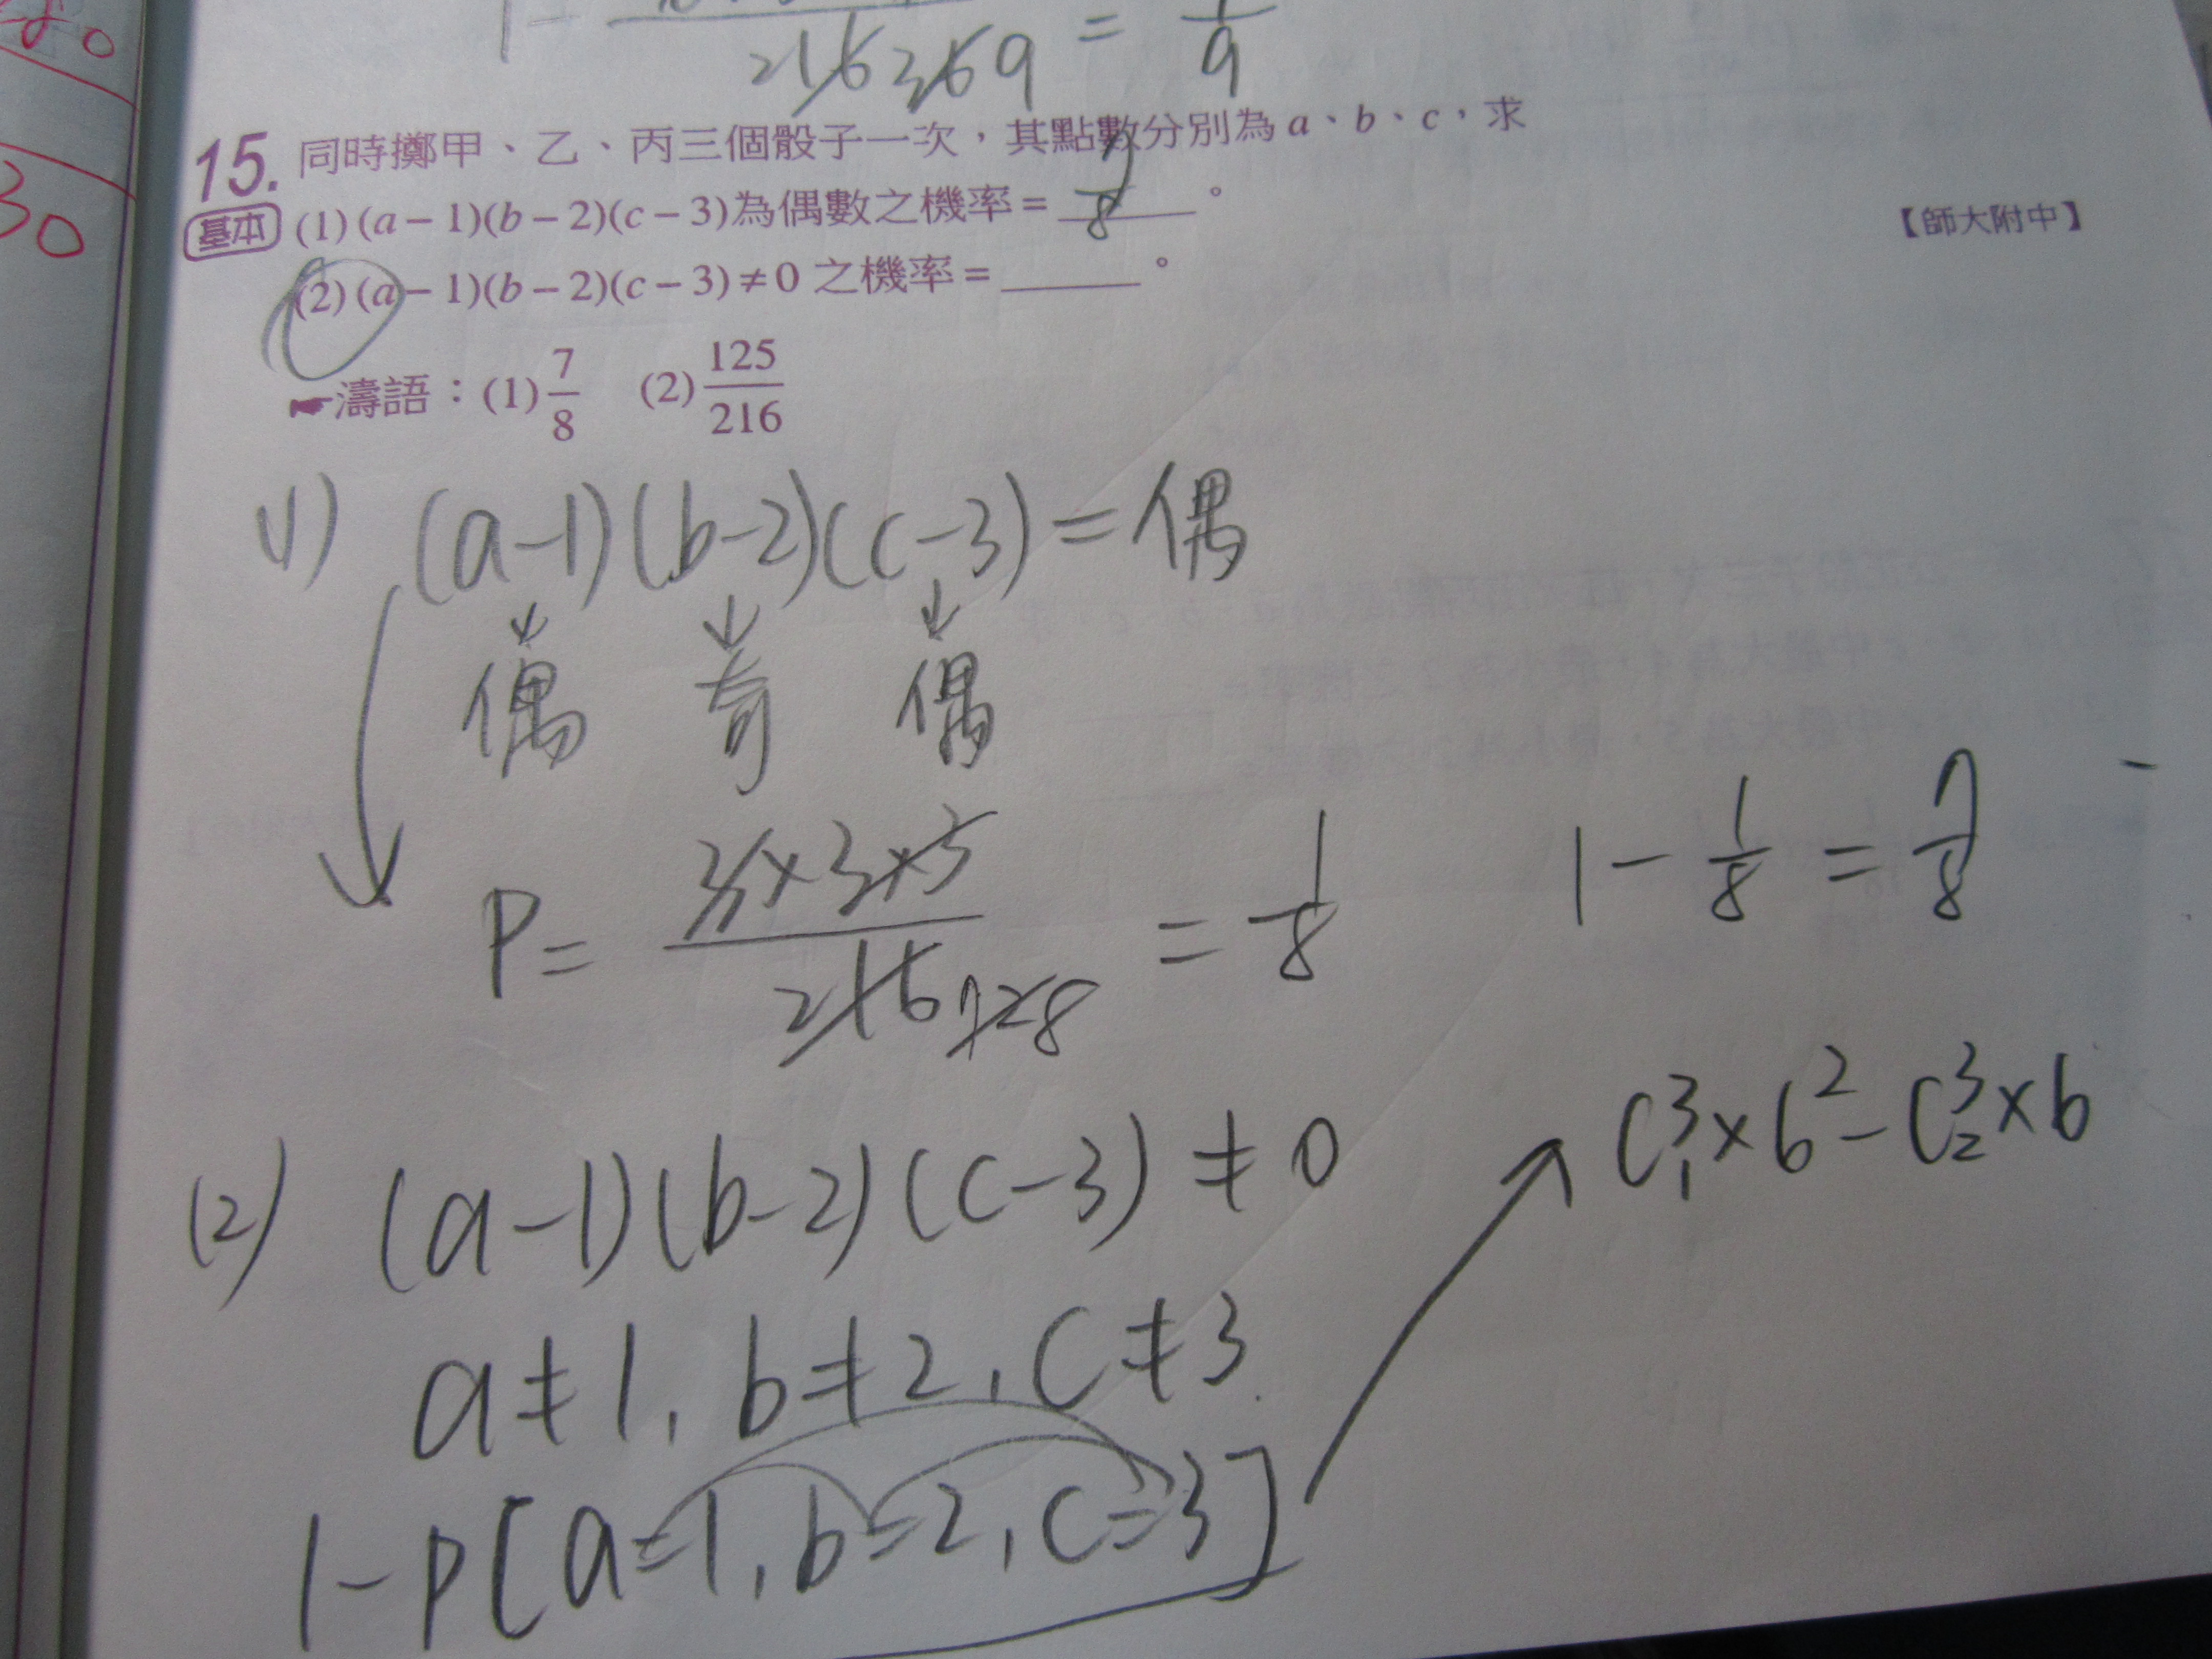 80
30
1 - 216 36 9 = 1/9
15. 同時擲甲、乙、丙三個骰子一次，其點數分別為 a、b、c，求
基本 (1) (a − 1)(b − 2)(c − 3)為偶數之機率 = 7/8 。
【師大附中】
(2) (a − 1)(b − 2)(c − 3) ≠ 0 之機率 = ______ 。
☛濤語：(1) 7/8 (2) 125/216
(1) (a-1)(b-2)(c-3) = 偶
偶 奇 偶
P = 3×3×3 / 216 72 8 = 1/8
1 - 1/8 = 7/8
(2) (a-1)(b-2)(c-3) ≠ 0
C³₁×6² - C³₂×6
a≠1, b≠2, c≠3
1-P[a=1, b=2, c=3]